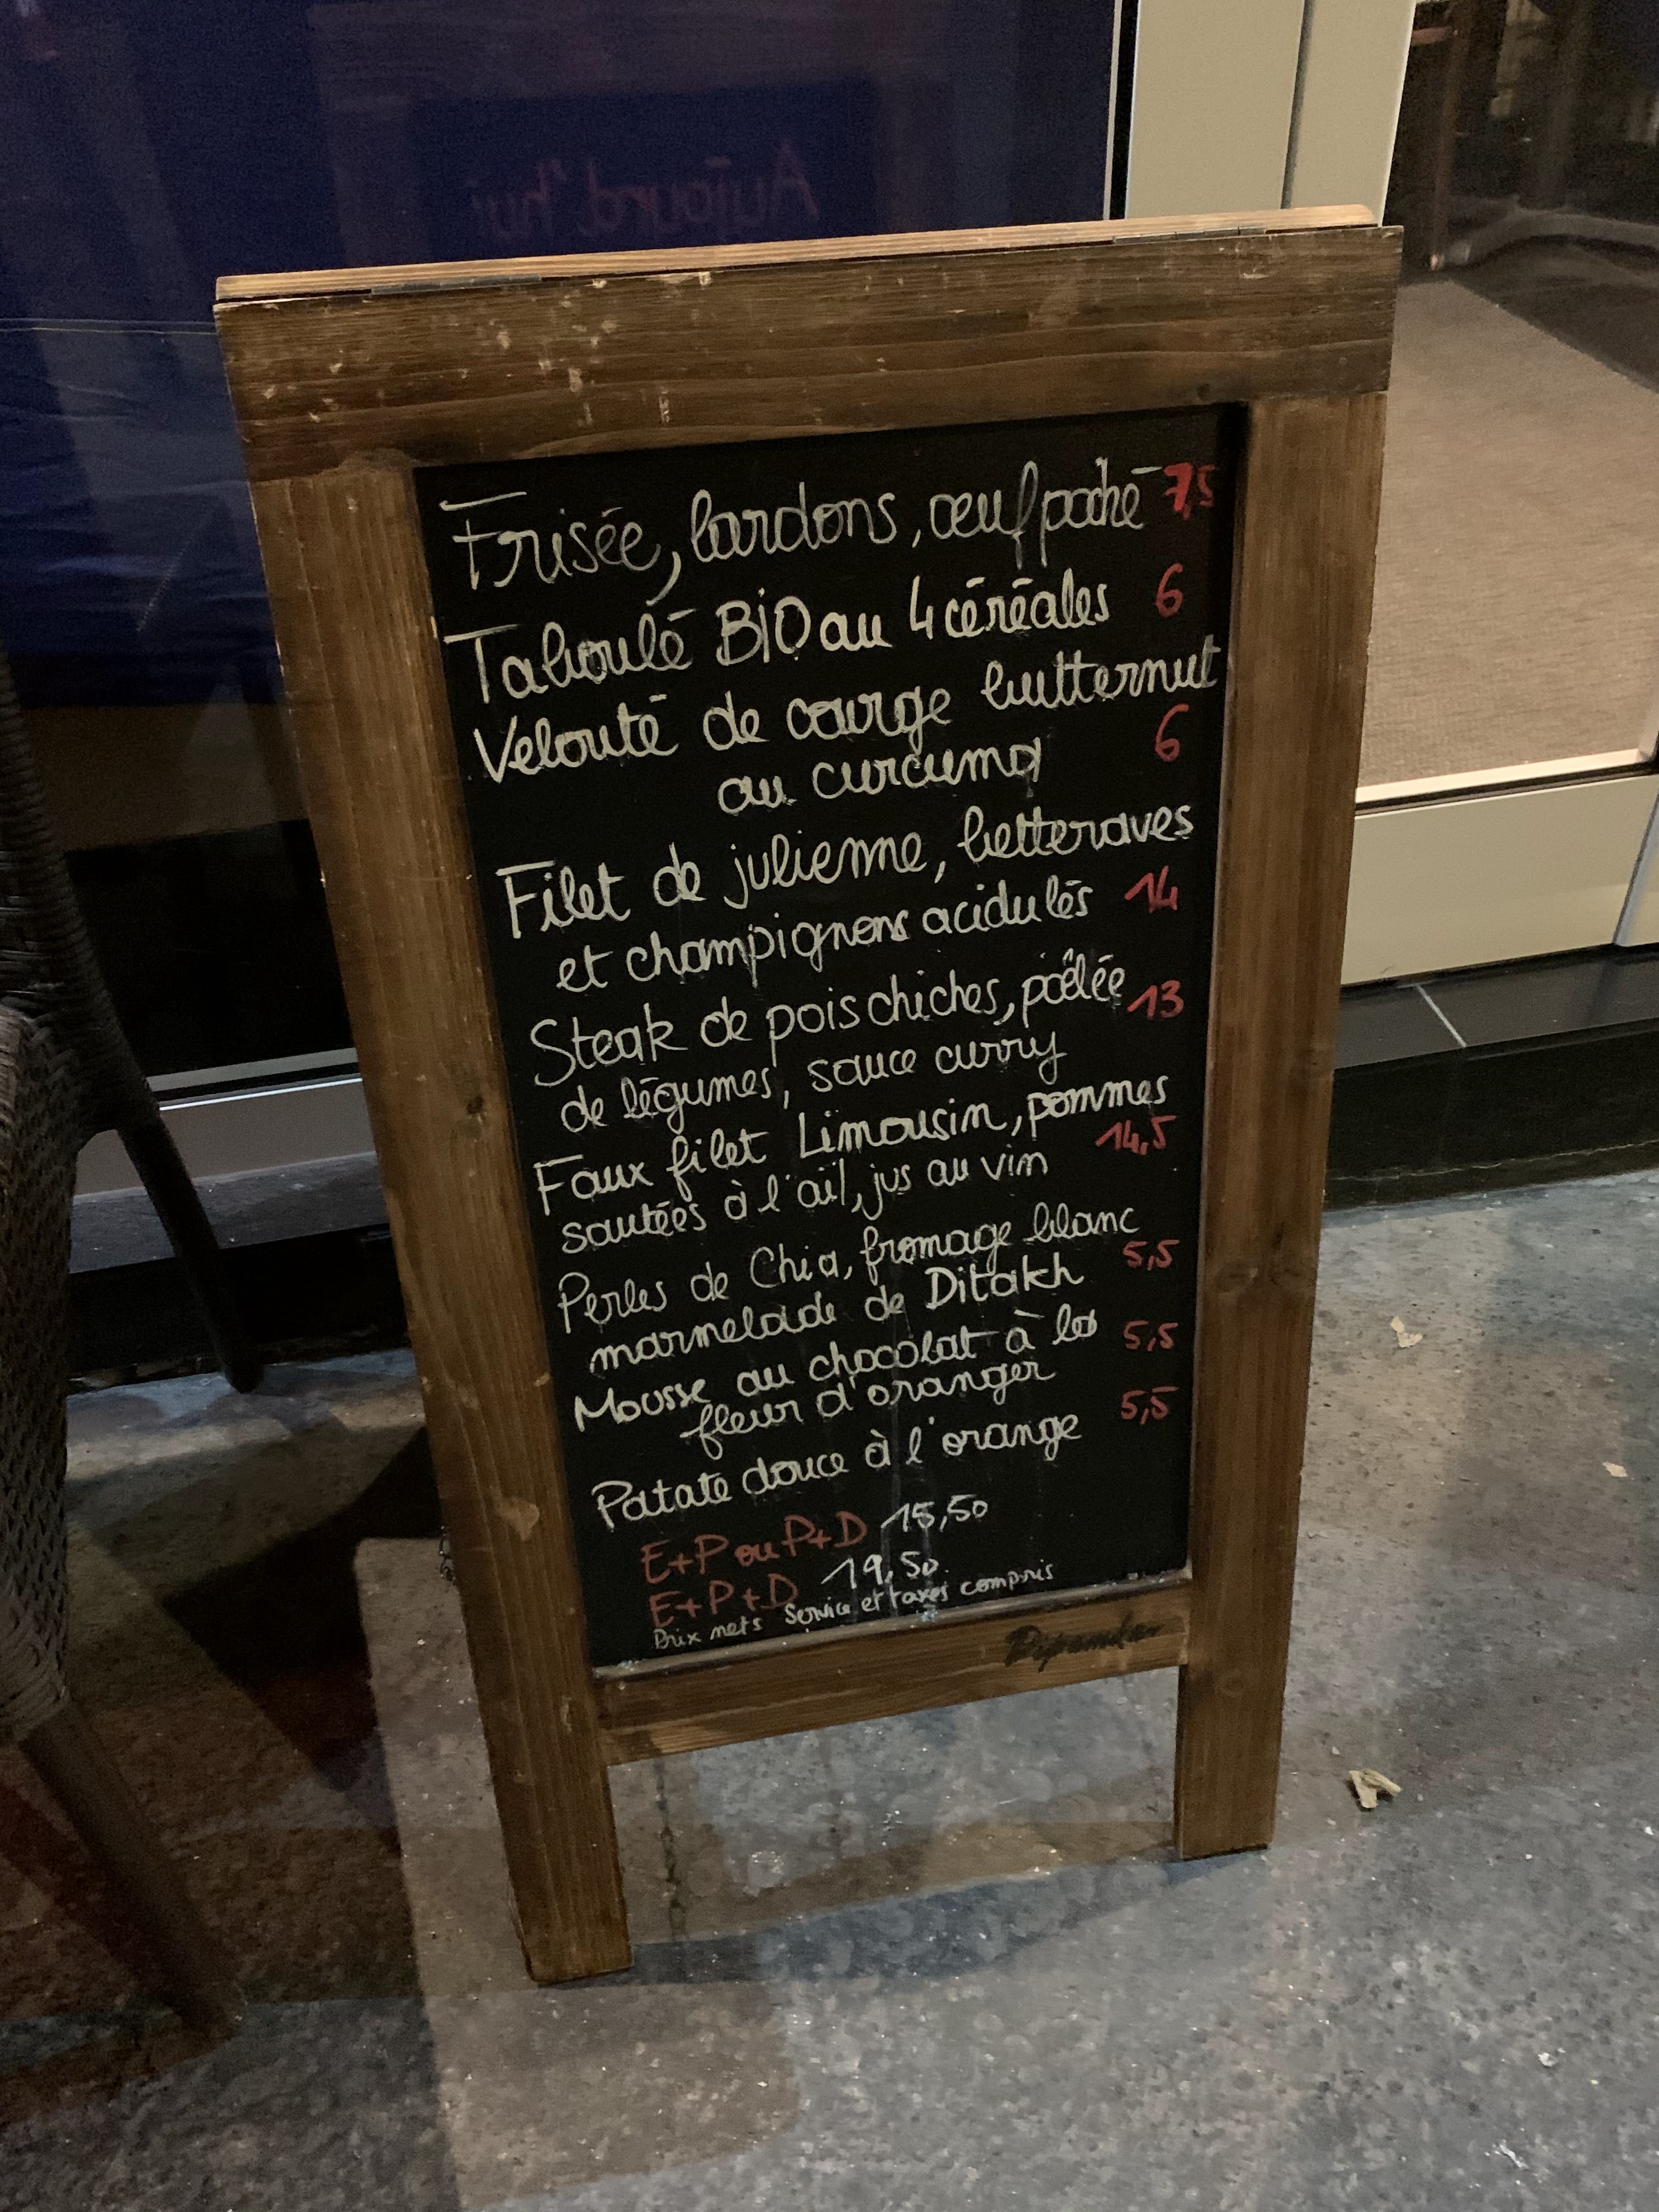 Aujourd'hui
Frisée, lardons, œuf poché 7,5
Taboulé BiO au 4 céréales 6
Velouté de courge butternut
au curcuma 6
Filet de julienne, betteraves
et champignons acidulés 14
Steak de pois chiches, poêlée 13
de légumes, sauce curry
Faux filet Limousin, pommes
sautées à l'ail, jus au vin 14,5
Perles de Chia, fromage blanc
marmelade de Ditakh 5,5
Mousse au chocolat à la 5,5
fleur d'oranger
Patate douce à l'orange 5,5
E+P ou P+D 15,50
E+P+D 19,50
Prix nets Service et taxes compris